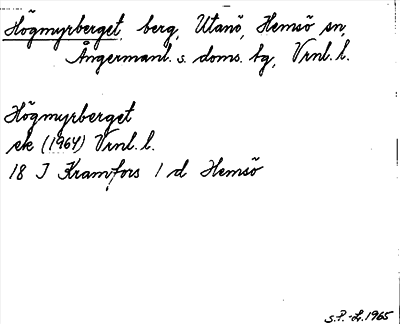 Högmyrberget, berg, Utanö, Hemsö sn,
Ångermanl. s. doms. tg, Vrnl. l.
Högmyrberget
ek (1964) Vrnl. l.
18 J Kramfors 1 d Hemsö
S.P.-L. 1965